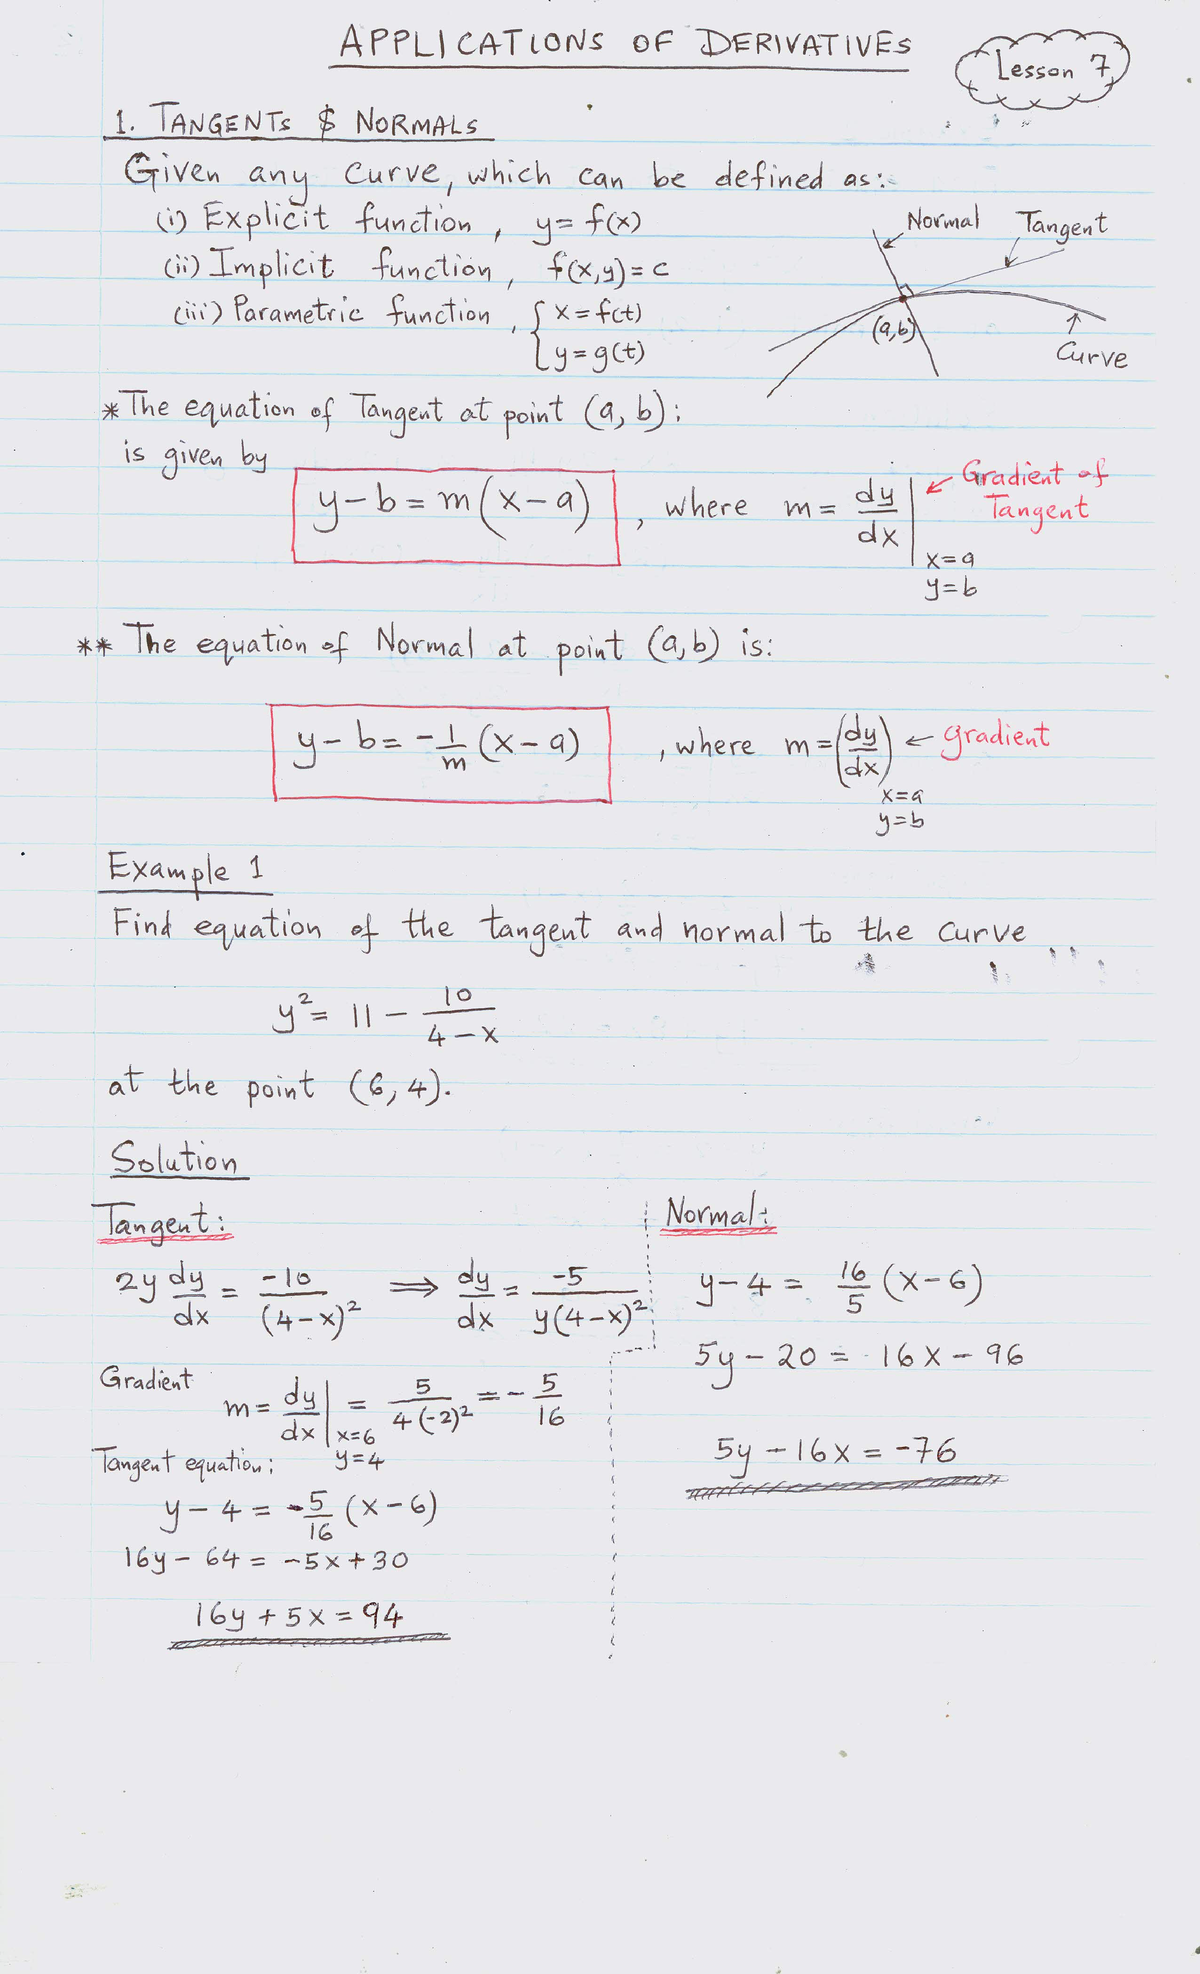 APPLICATIONS OF DERIVATIVES
Lesson 7
1. TANGENTS & NORMALS
Given any curve, which can be defined as:
(i) Explicit function, y = f(x)
(ii) Implicit function, f(x,y) = c
(iii) Parametric function, { x = f(t)
y = g(t)
Normal
Tangent
(a,b)
Curve
* The equation of Tangent at point (a, b):
is given by
y - b = m(x - a), where m = dy/dx | x=a y=b
← Gradient of
Tangent
** The equation of Normal at point (a,b) is:
y - b = -1/m (x - a), where m = (dy/dx) x=a y=b ← gradient
Example 1
Find equation of the tangent and normal to the curve
y² = 11 - 10/(4 - x)
at the point (6, 4).
Solution
Tangent:
2y dy/dx = -10/(4-x)² ⟹ dy/dx = -5/y(4-x)²
Gradient
m = dy/dx | x=6 y=4 = 5/4(-2)² = - 5/16
Tangent equation;
y - 4 = -5/16 (x - 6)
16y - 64 = -5x + 30
16y + 5x = 94
Normal:
y - 4 = 16/5 (x - 6)
5y - 20 = 16x - 96
5y - 16x = -76